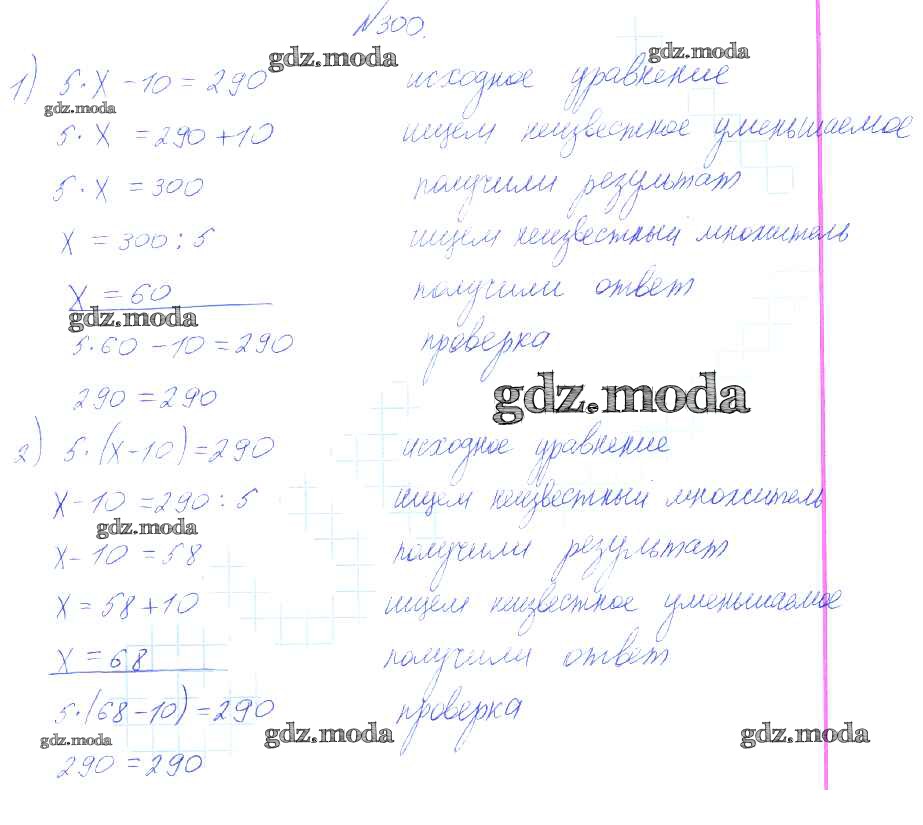 №300.
gdz.moda
gdz.moda
1) 5·X – 10 = 290 исходное уравнение
gdz.moda
5·X = 290 + 10 ищем неизвестное уменьшаемое
5·X = 300 получили результат
X = 300 : 5 ищем неизвестный множитель
X = 60 получили ответ
gdz.moda
5·60 – 10 = 290 проверка
290 = 290
gdz.moda
2) 5·(X–10) = 290 исходное уравнение
X – 10 = 290 : 5 ищем неизвестный множитель
gdz.moda
X – 10 = 58 получили результат
X = 58 + 10 ищем неизвестное уменьшаемое
X = 68 получили ответ
5·(68 – 10) = 290 проверка
gdz.moda gdz.moda gdz.moda
290 = 290